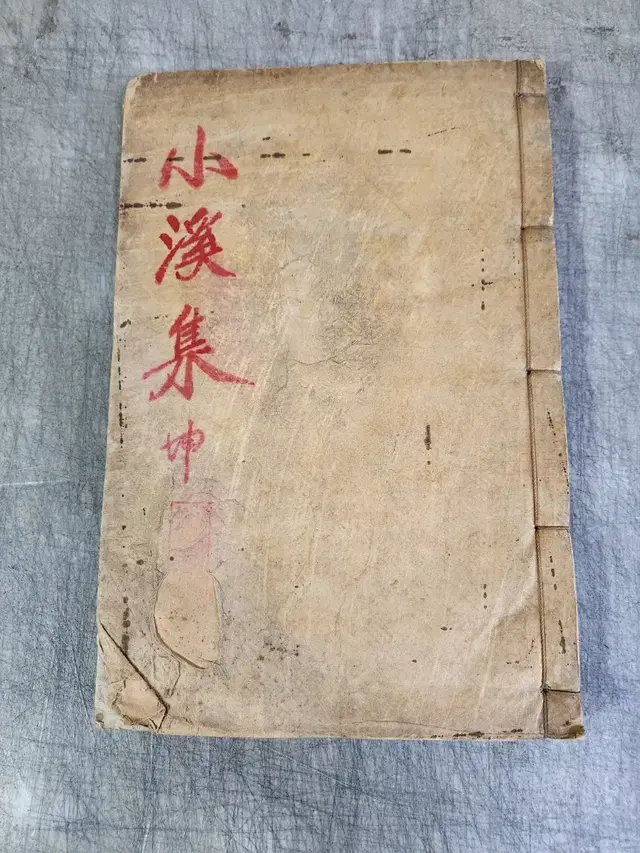 小溪集
坤